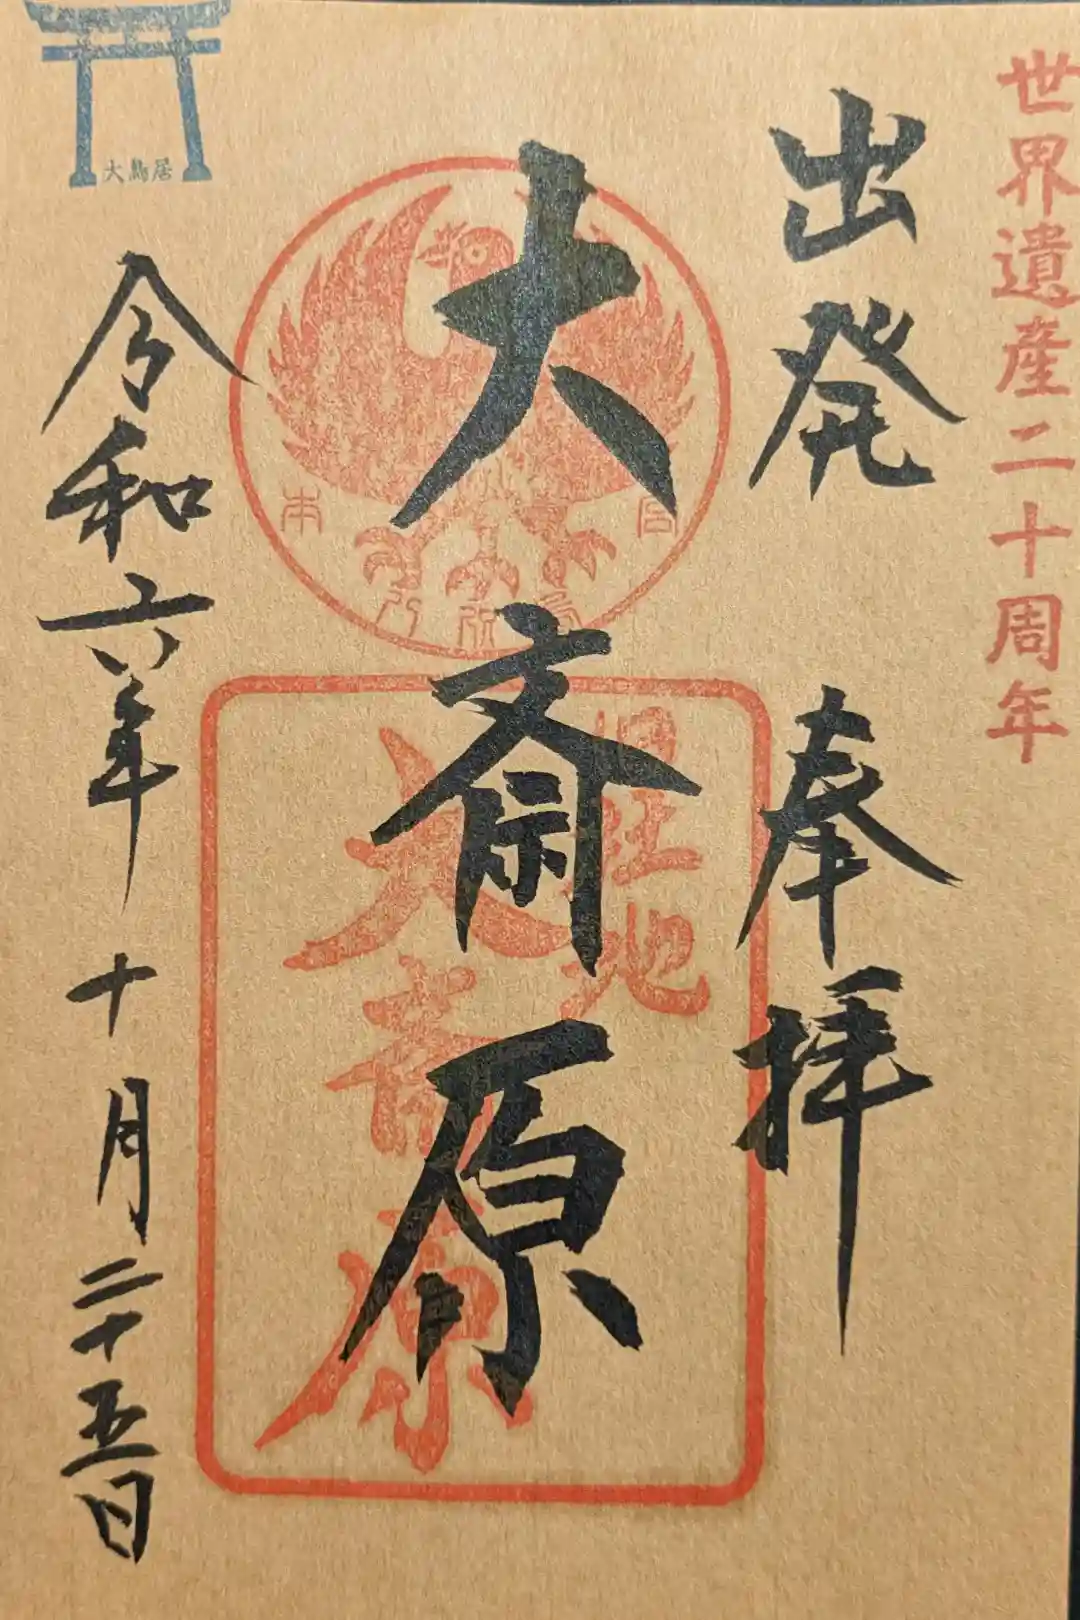 世界遺産二十周年
出発 奉拝
大斎原
旧社地
大斎原
大鳥居
令和六年 十月 二十五日